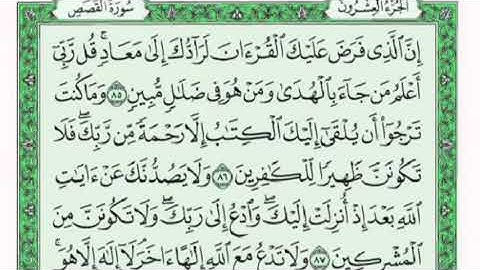 الجُزْءُ العِشْرُونَ
سُورَةُ القَصَصِ
إِنَّ ٱلَّذِى فَرَضَ عَلَيْكَ ٱلْقُرْءَانَ لَرَآدُّكَ إِلَىٰ مَعَادٍۚ قُل رَّبِّىٓ
أَعْلَمُ مَن جَآءَ بِٱلْهُدَىٰ وَمَنْ هُوَ فِى ضَلَٰلٍ مُّبِينٍ ٨٥ وَمَا كُنتَ
تَرْجُوٓا۟ أَن يُلْقَىٰٓ إِلَيْكَ ٱلْكِتَٰبُ إِلَّا رَحْمَةً مِّن رَّبِّكَۖ فَلَا
تَكُونَنَّ ظَهِيرًا لِّلْكَٰفِرِينَ ٨٦ وَلَا يَصُدُّنَّكَ عَنْ ءَايَٰتِ
ٱللَّهِ بَعْدَ إِذْ أُنزِلَتْ إِلَيْكَۖ وَٱدْعُ إِلَىٰ رَبِّكَۖ وَلَا تَكُونَنَّ مِنَ
ٱلْمُشْرِكِينَ ٨٧ وَلَا تَدْعُ مَعَ ٱللَّهِ إِلَٰهًا ءَاخَرَۘ لَآ إِلَٰهَ إِلَّا هُوَۚ